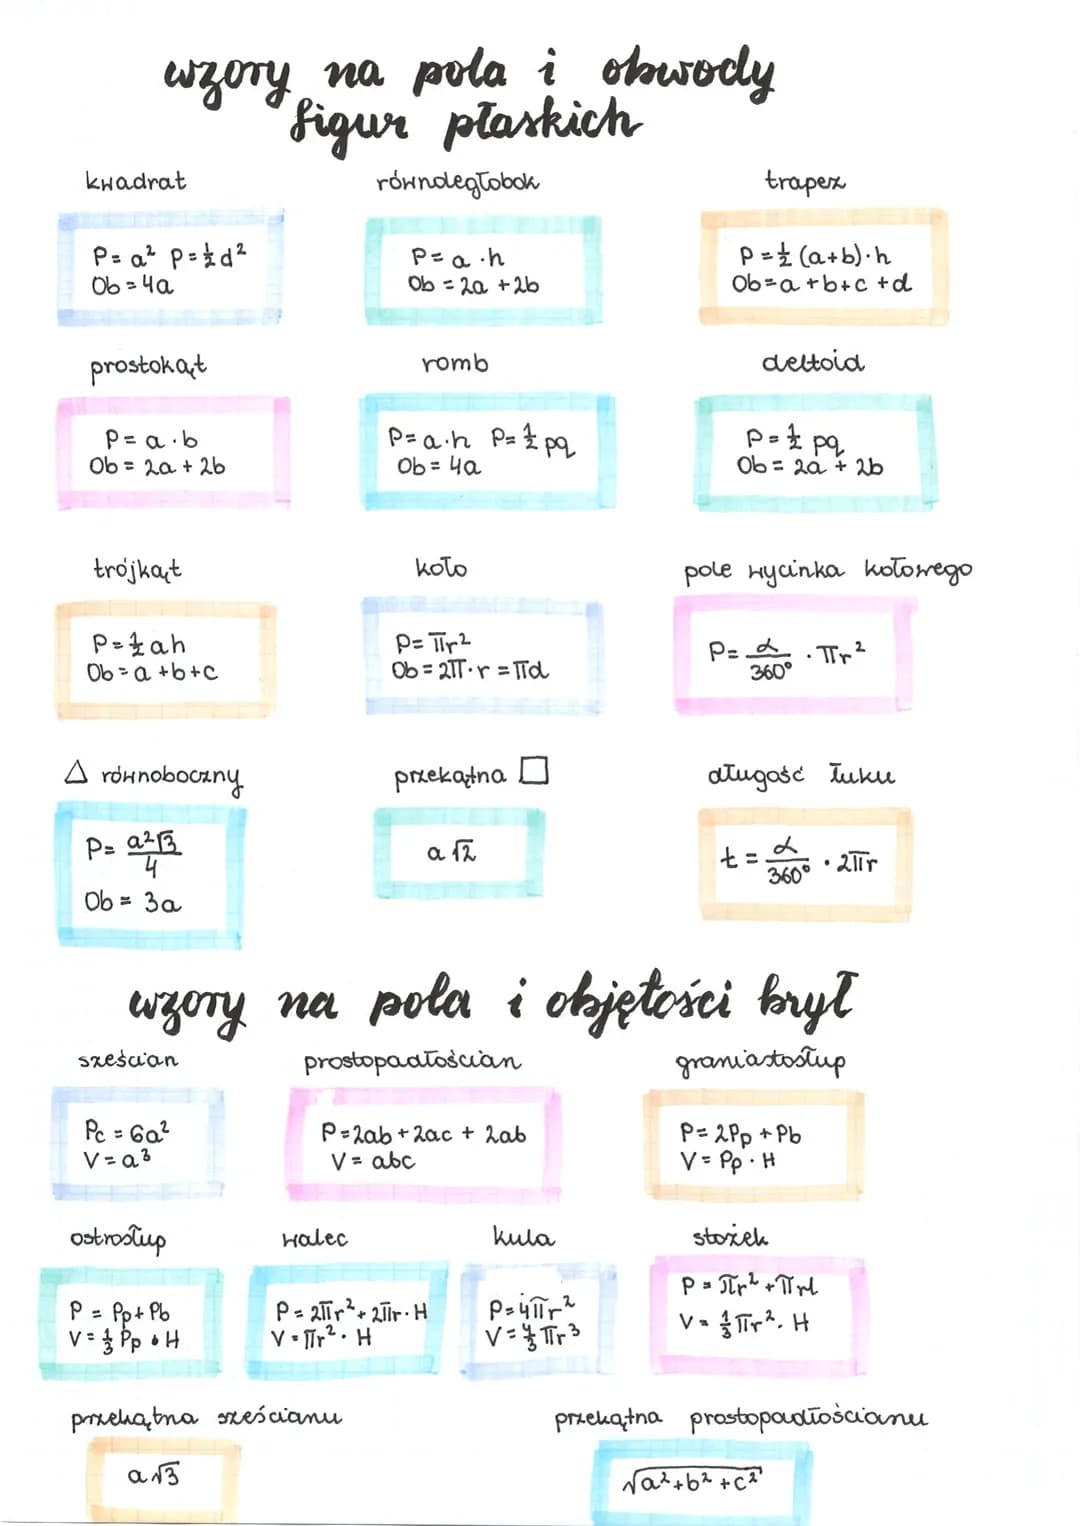 wzory na pola i obwody
figur płaskich
kwadrat
P = a² P = ½ d²
Ob = 4a
równoległobok
P = a · h
Ob = 2a + 2b
trapez
P = ½ (a+b) · h
Ob = a + b + c + d
prostokąt
P = a · b
Ob = 2a + 2b
romb
P = a · h P = ½ pq
Ob = 4a
deltoid
P = ½ pq
Ob = 2a + 2b
trójkąt
P = ½ ah
Ob = a + b + c
koło
P = πr²
Ob = 2π · r = πd
pole wycinka kołowego
P = α/360° · πr²
△ równoboczny
P = a²√3/4
Ob = 3a
przekątna □
a√2
długość łuku
ł = α/360° · 2πr
wzory na pola i objętości brył
sześcian
Pc = 6a²
V = a³
prostopadłościan
P = 2ab + 2ac + 2ab
V = abc
graniastosłup
P = 2Pp + Pb
V = Pp · H
ostrosłup
P = Pp + Pb
V = ⅓ Pp · H
walec
P = 2πr² + 2πr · H
V = πr² · H
kula
P = 4πr²
V = 4/3 πr³
stożek
P = πr² + πrl
V = ⅓ πr² · H
przekątna sześcianu
a√3
przekątna prostopadłościanu
√a² + b² + c²